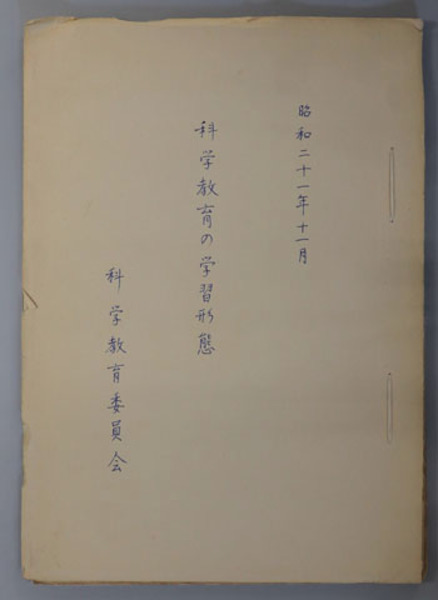 昭和二十一年十一月
科学教育の学習形態
科学教育委員会